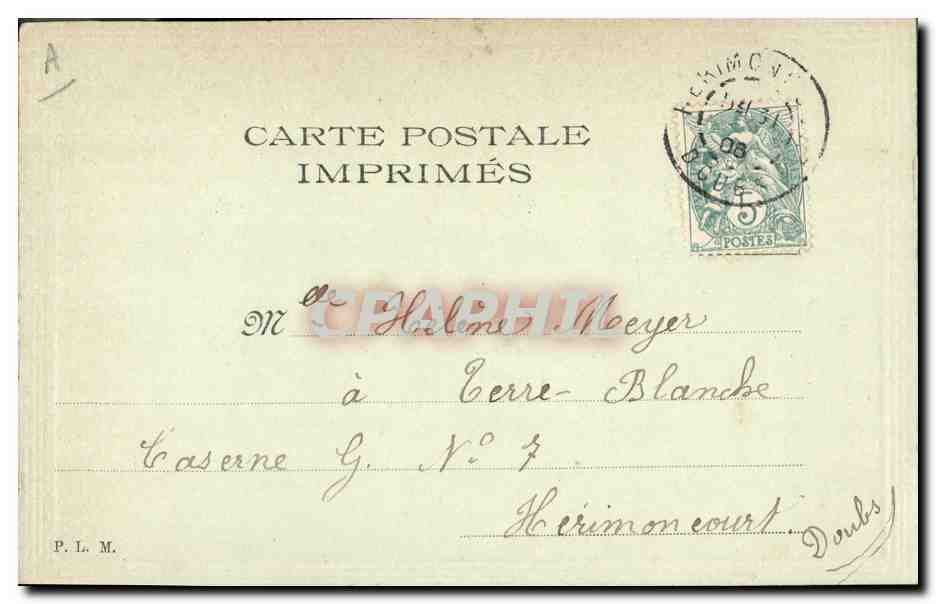 A
CARTE POSTALE
IMPRIMÉS
5
POSTES
CPAPHIL
Mde Hélène Meyer
à Terre-Blanche
Caserne G. No 7
Hérimoncourt.
Doubs
P. L. M.